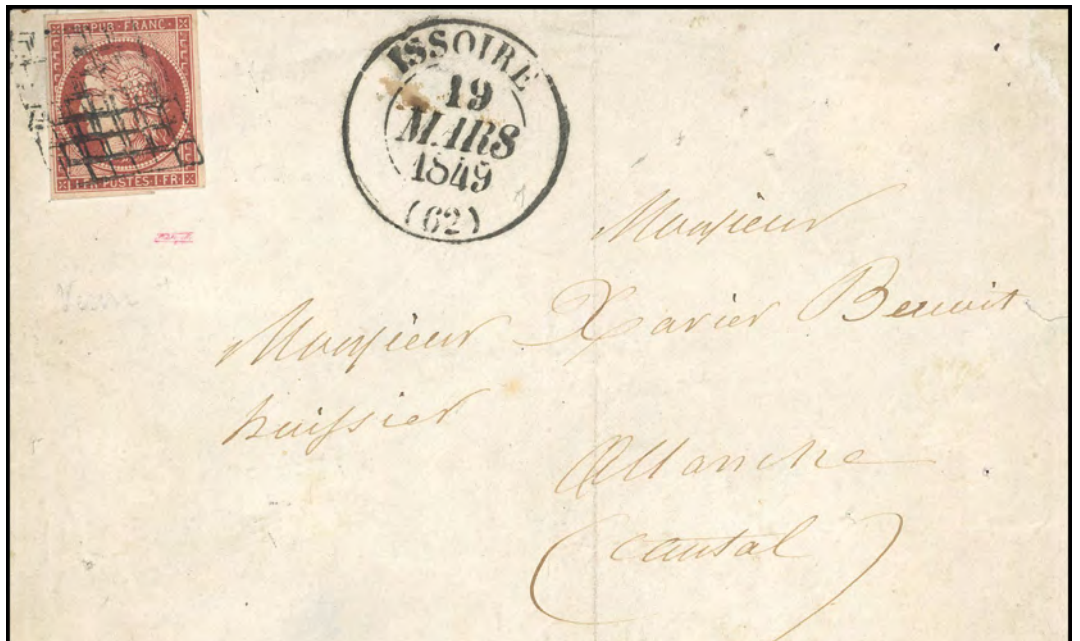 REPUB·FRANC·
1·FR·POSTES·1·FR
ISSOIRE
19
MARS
1849
(62)
Monsieur
Monsieur Xavier Benoit
huissier
Allanche
(Cantal)